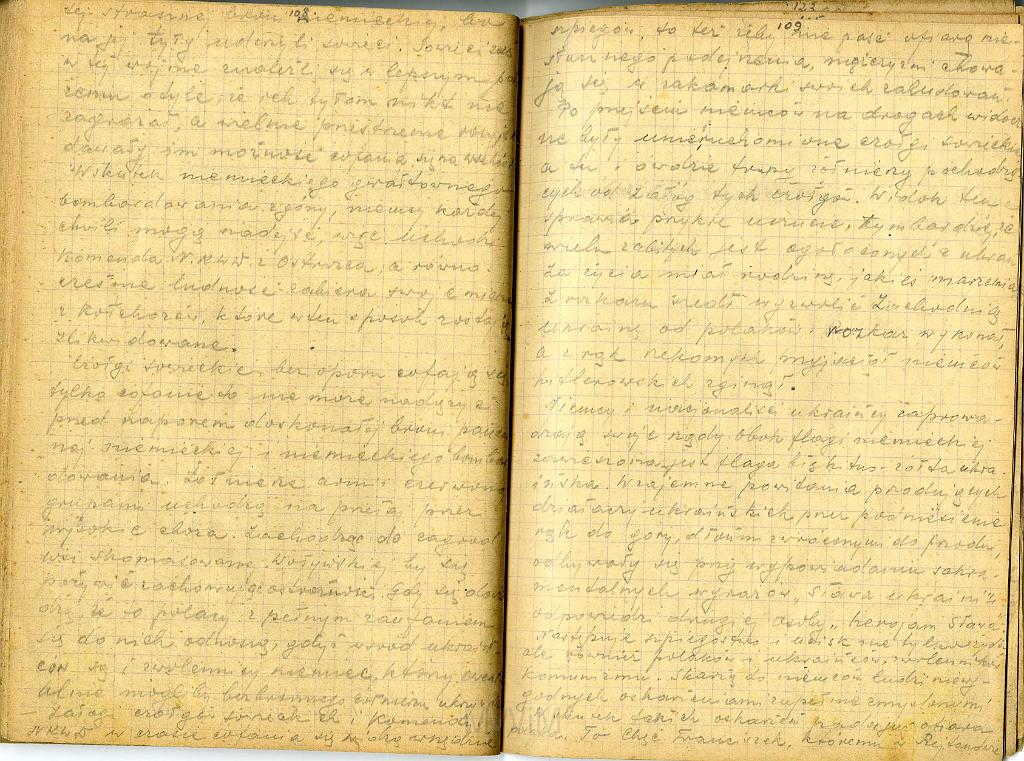 108
tej strasznej broni niemieckiej, bo
na jej tyły uderzyli sowieci. Sowieci
w tej wojnie znaleźli się w lepszym
o tyle, że ich tyłom nikt nie
zagrażał, a wielkie przestrzenie
dawały im możność cofania się na wschód
Wskutek niemieckiego gwałtownego
bombardowania z góry, niemcy każdej
chwili mogą nadejść, więc uchodzi
Komenda N.K.W.D. z Ostrożca, a równo-
cześnie ludność zabiera swoje mienie
z kołchozów, które w ten sposób zostają
zlikwidowane.
Czołgi sowieckie bez oporu cofają się
tylko cofanie to nie może nadążyć
przed naporem doskonałej broni pancer
nej niemieckiej i niemieckiego bombar
dowania. Żołnierze armii czerwonej
grupami uchodzą na pieszo przez
wysokie zboża. Zachodząc do zagród
wsi skomasowanej wołyńskiej by się
pożywić zachowują ostrożność. Gdy się dowie
dzą, że to polacy z pełnym zaufaniem
się do nich odnoszą, gdyż wśród ukraiń
ców są i zwolennicy niemiec, którzy ewent
ualnie mogliby bezbronnego żołnierza
Załogi czołgów sowieckich i Komenda
N.K.W.D. w czasie cofania się widzą wszędzie
109
szpiegów, to też żeby nie paść ofiarą nie-
słusznego podejrzenia, mężczyźni chowa-
ją się w zakamarki swoich zabudowań.
Po przejściu niemców na drogach widocz
ne były unieruchomione czołgi sowieckie
a tu i owdzie trupy żołnierzy pochodzą
cych od załóg tych czołgów. Widok ten
sprawia przykre uczucie, tymbardziej, że
wielu zabitych jest ogołoconych z ubrań
Za życia miał rodzinę, jakieś marzenia
Z rozkazu szedł wyzwolić Zachodnią
Ukrainę od polaków i rozkaz wykonał,
a z rąk rzekomych przyjaciół niemców
hitlerowskich zginął.
Niemcy i nacjonaliści ukraińscy zaprowa-
dzają swoje rządy. Obok flagi niemieckiej
zawieszona jest flaga błękitno-żółta ukra-
ińska. Wzajemne powitania przodujących
działaczy ukraińskich przez podniesienie
rąk do góry, dłońmi zwróconymi do przodu,
odbywały się przy wypowiadaniu sakra-
mentalnych wyrazów "Sława ukraini" i
odpowiedzi drugiej osoby "herojam Sława"
Następuje szpiegostwo i ucisk nie tylko żydów
ale również polaków i ukraińców, zwolenników
komunizmu. Skarżą do niemców ludzi niewy-
godnych oskarżeniami zupełnie zmyślonymi
skutek takich oskarżeń padają ofiarą
To Chęć Franciszek, któremu z Rejtanówki